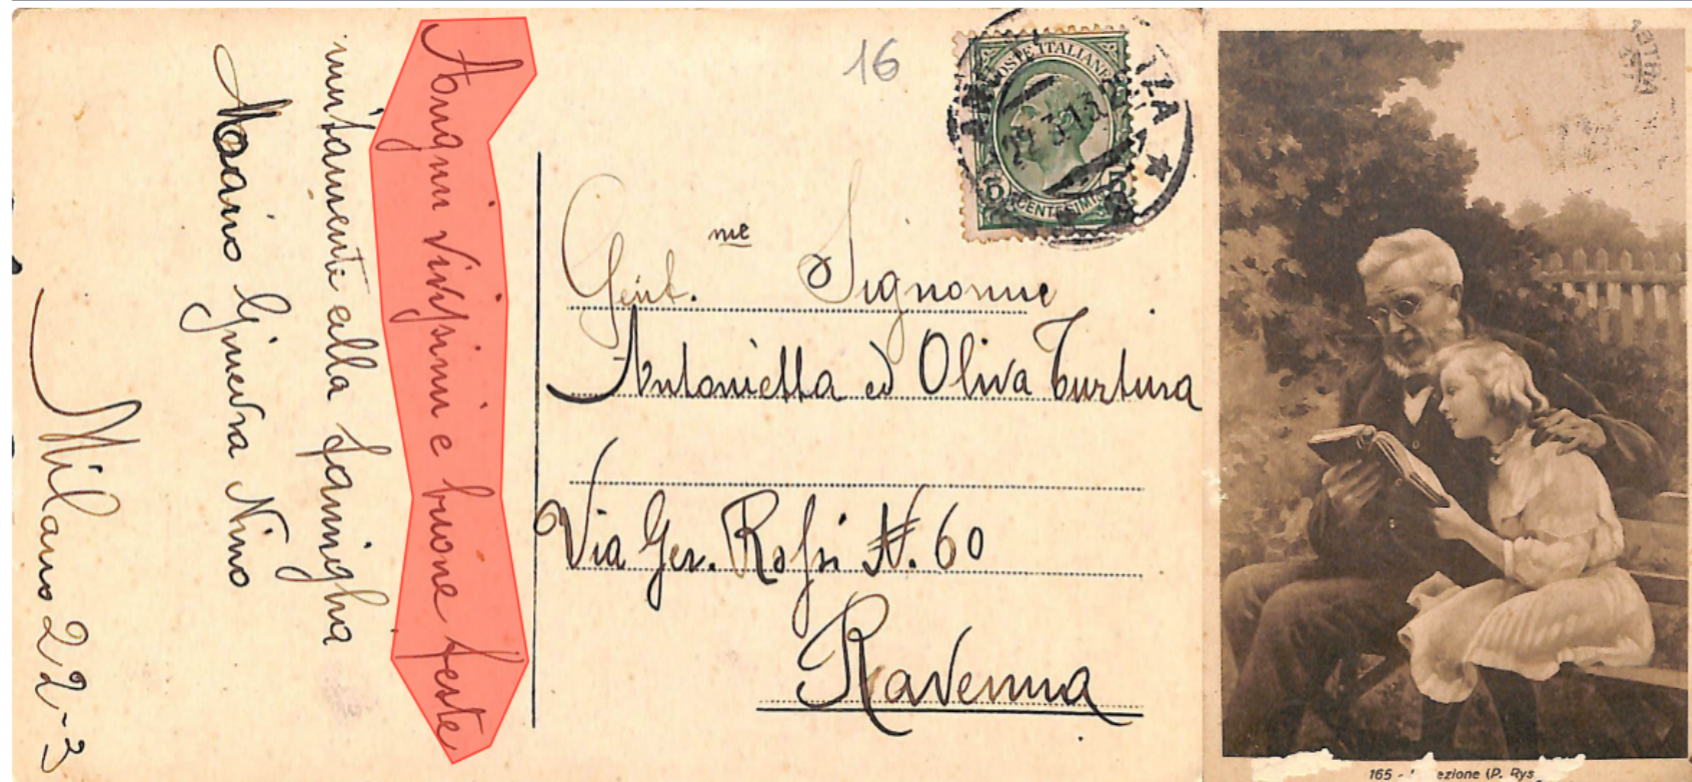 Auguri vivissimi e buone feste
unitamente alla famiglia
Mario Ginevra Nino
Milano 22-3
16
POSTE ITALIANE
22.3.13
CENTESIMI
Gent.me Signorine
Antonietta ed Oliva Turtura
Via Ger. Rossi N. 60
Ravenna
165 - ezione (P. Rys